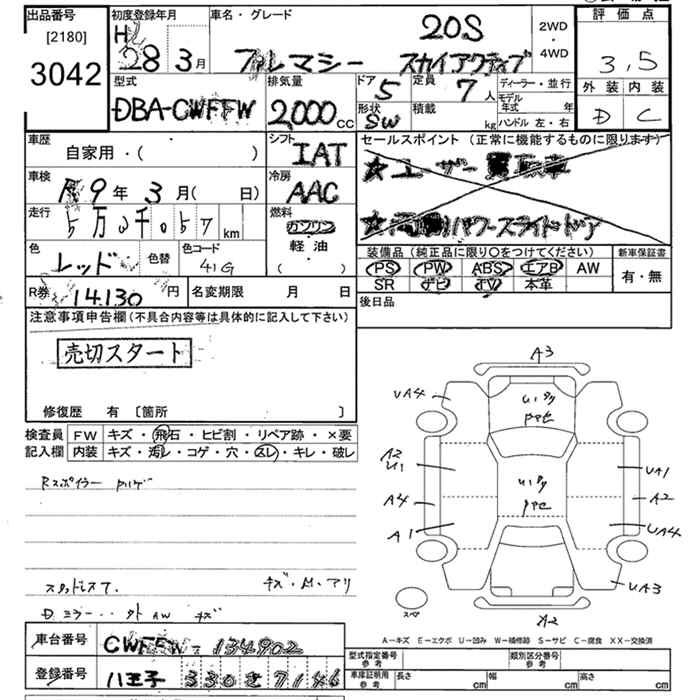 出品番号
[2180]
3042
初度登録年月
H
28 3月
車名・グレード
20S
プレマシー スカイアクティブ
2WD
・
4WD
評価点
3.5
外装 内装
D C
型式
DBA-CWFFW
排気量
2,000cc
ドア
5
形状
SW
定員
7人
積載
kg
ディーラー・並行
モデル年式 年
ハンドル 左・右
車歴
自家用・( )
シフト
IAT
セールスポイント (正常に機能するものに限ります)
車検
9年 3月( 日)
冷房
AAC
走行
km
燃料
ガソリン
軽油
( )
パワースライドドア
色
レッド
色替
色コード
41G
装備品 (純正品に限り〇をつけてください)
新車保証書
PS PW ABS エアB AW
SR ナビ TV 本革
有・無
R券
14.130円
名変期限 月 日
後日品
注意事項申告欄(不具合内容等は具体的に記入して下さい)
売切スタート
修復歴 有 [箇所 ]
検査員
記入欄
FW キズ・飛石・ヒビ割・リペア跡・×要
内装 キズ・汚レ・コゲ・穴・スレ・キレ・破レ
Rスポイラー
スタッドレス
キズ・M・アリ
D ミラー・・外 AW キズ
A3
UA4
A2
U1
A4
A1
UA1
A2
UA4
UA3
A-2
スペア
A-キズ E-エクボ U-凹み W-補修跡 S-サビ C-腐食 XX-交換済
車台番号
CWFFW-134902
登録番号
八王子 330 さ 7146
型式指定番号
参考
類別区分番号
参考
車庫証明用
参考
長さ cm
幅 cm
高さ cm